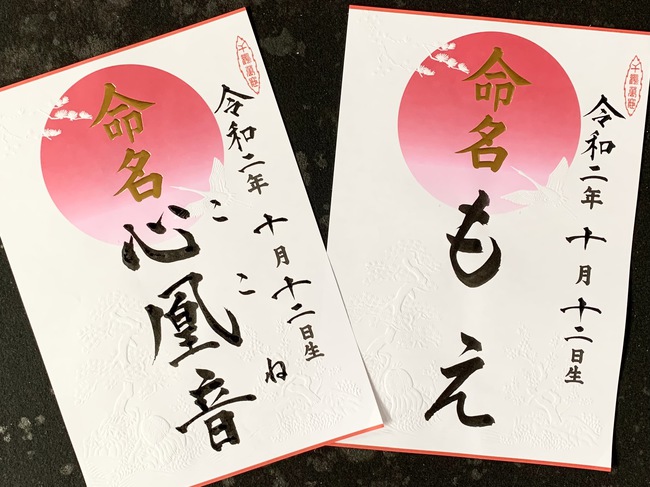 命名
心凰音
ここね
令和二年十月十二日生
命名
もえ
令和二年十月十二日生